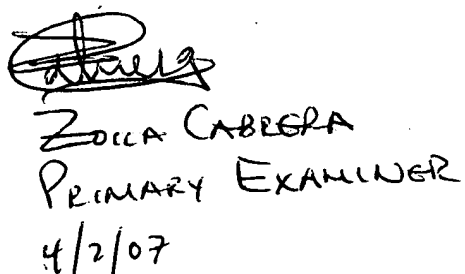 Zoila Cabrera
Primary Examiner
4/2/07